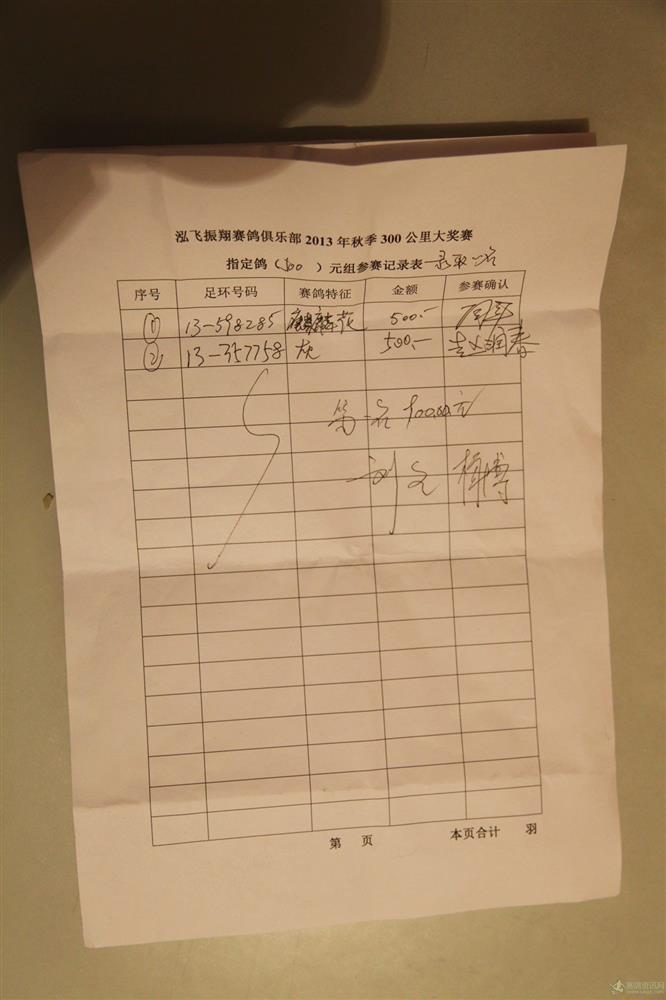 泓飞振翔赛鸽俱乐部2013年秋季300公里大奖赛
指定鸽（500）元组参赛记录表 录取一名
序号 足环号码 赛鸽特征 金额 参赛确认
① 13-598285 麒麟花 500.-
② 13-357758 灰 500.- 赵润春
第一名 900.00元
第 页 本页合计 羽
赛鸽资讯网